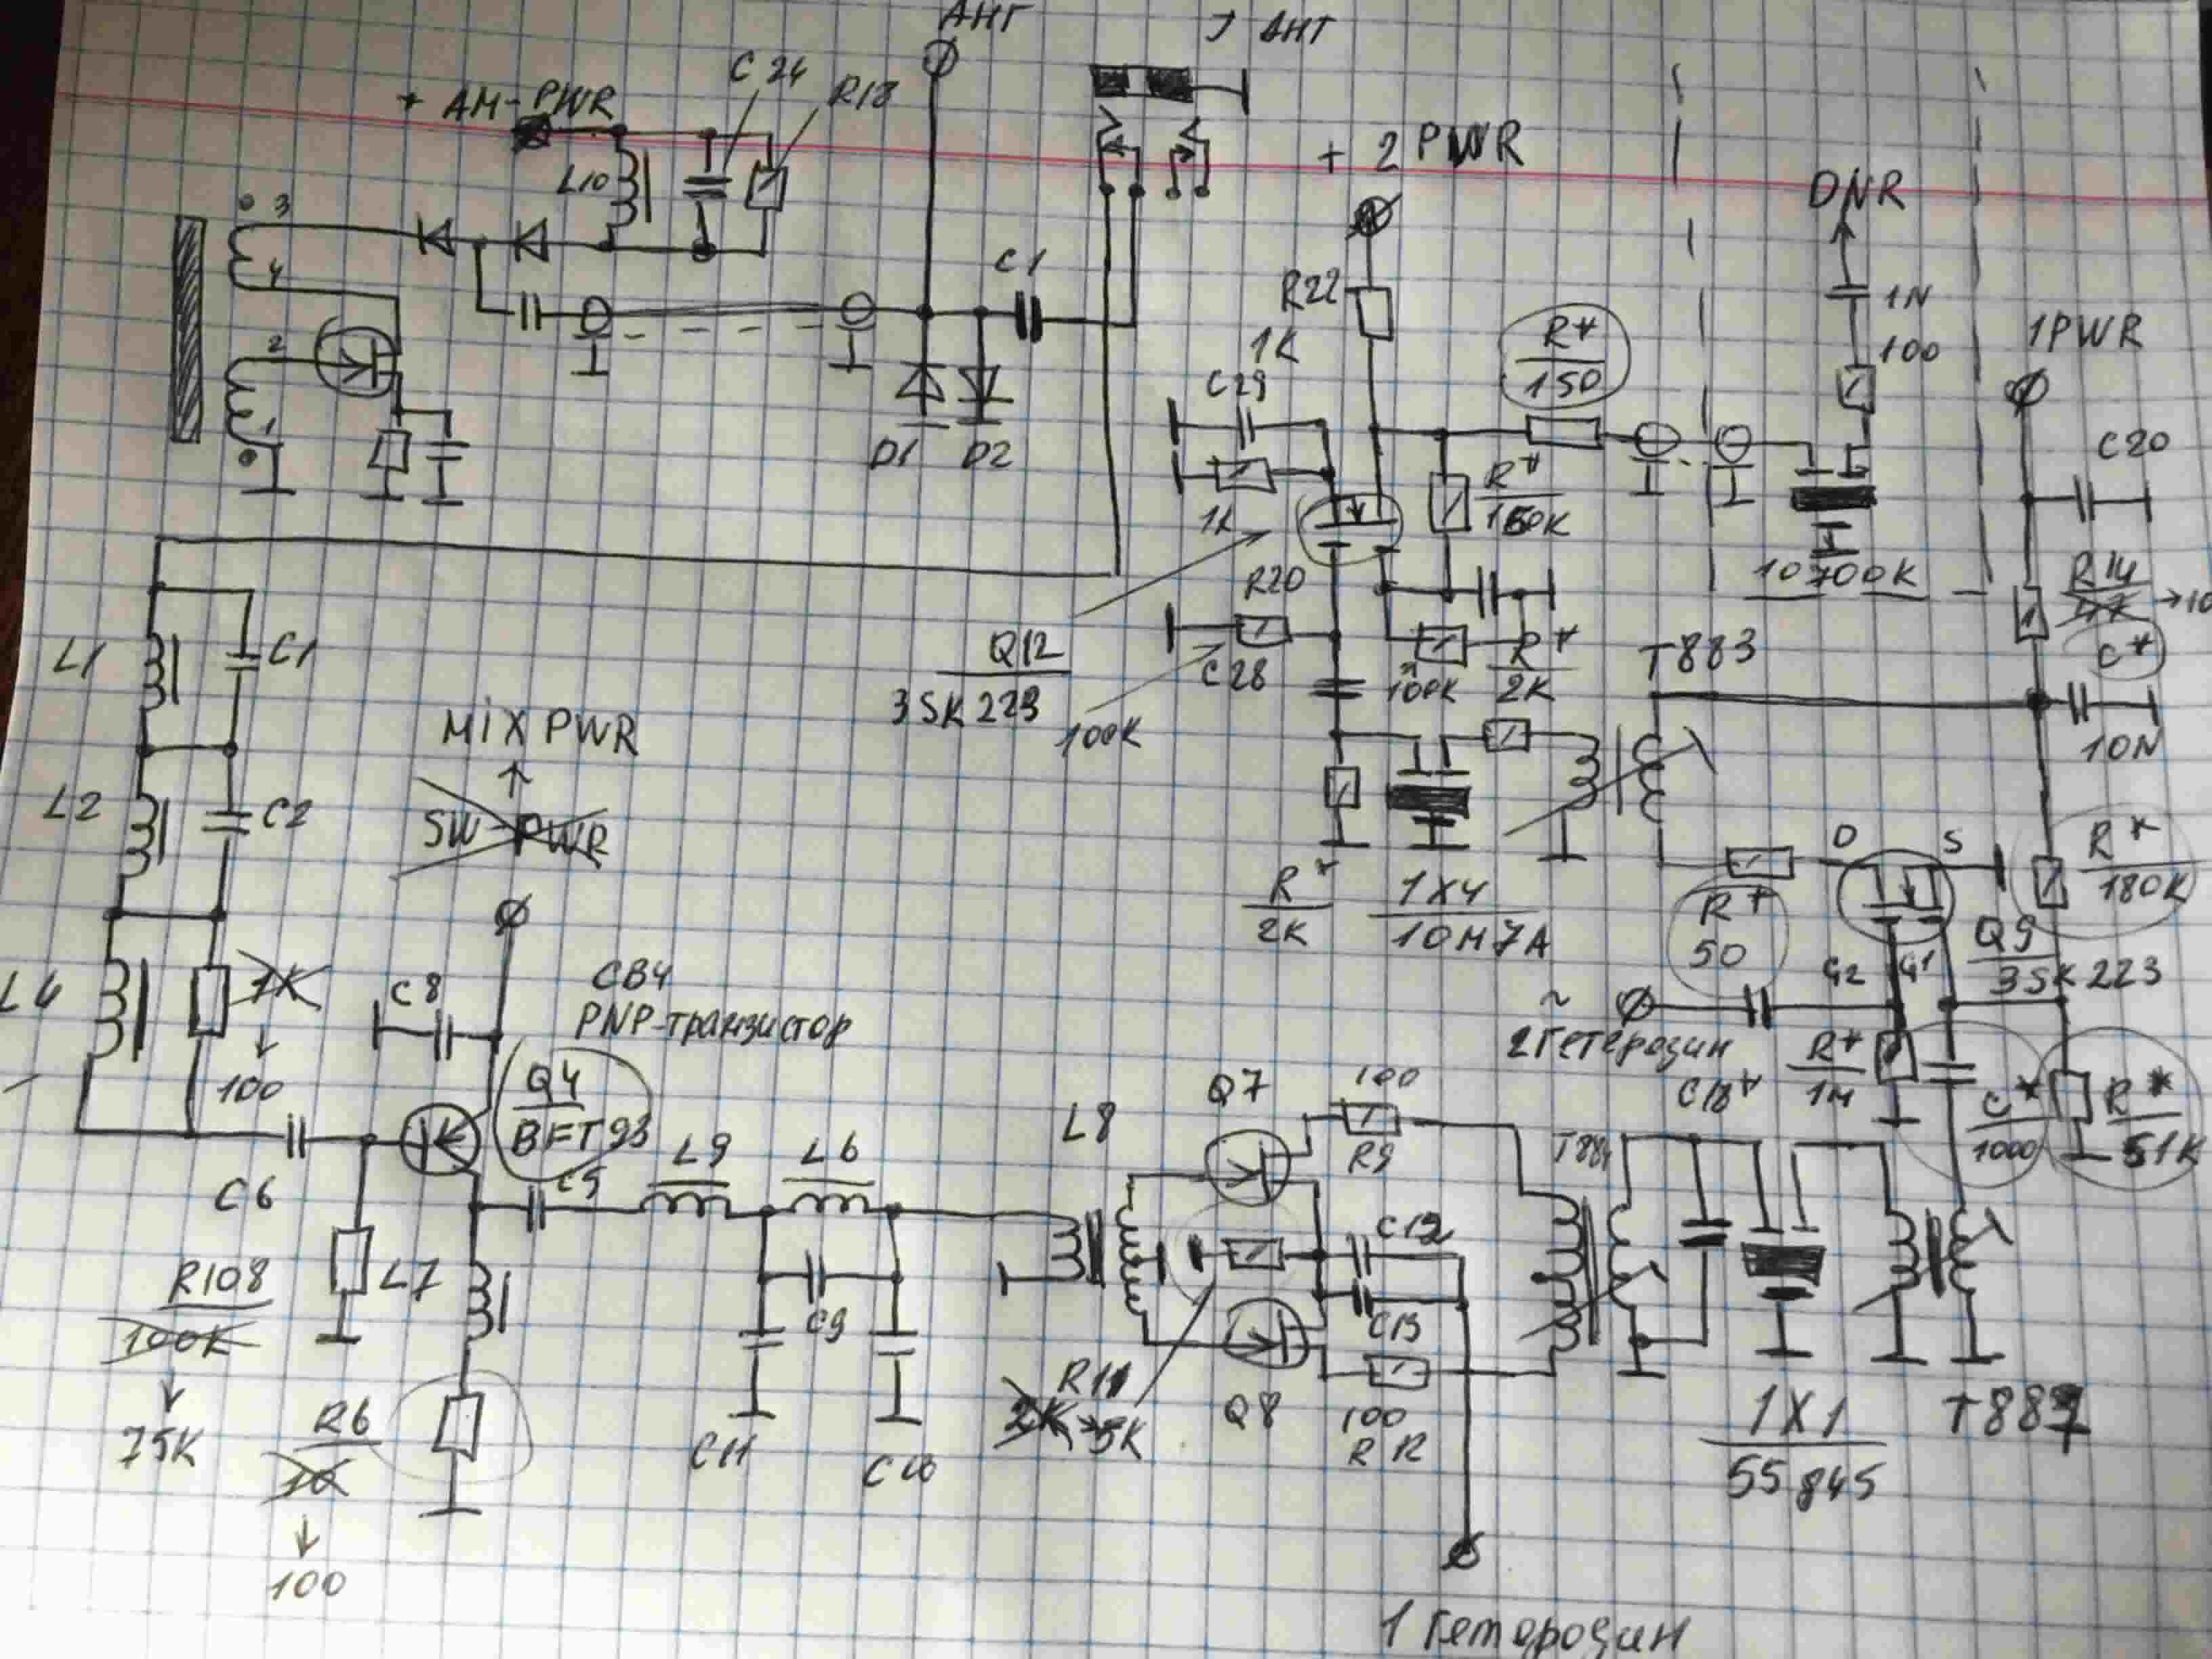 АНТ
J АНТ
+ AM-PWR
C24
R18
L10
+ 2 PWR
DNR
3
4
2
1
C1
D1
D2
R22
1K
C29
1K
R*
150
1N
100
1PWR
C20
R*
R20
10700K
R14
47 → 10
C*
10N
Q12
3SK223
100K
C28
100K
R*
2K
T883
L1
C1
L2
C2
MIX PWR
SW-PWR
R*
2K
1X4
10M7A
R*
50
D
S
R*
180K
Q9
3SK223
G2
G1
L4
1K
100
C8
CB4
PNP-транзистор
Q4
BFT93
~
2 Гетеродин
C18*
R*
1M
C*
1000
R*
51K
C6
C5
L9
L6
L8
Q7
100
R9
T884
R108
100K
75K
L7
R6
10
100
C9
C11
C10
C12
C13
R11
2K → 5K
Q8
100
R12
1X1
55845
1 Гетеродин